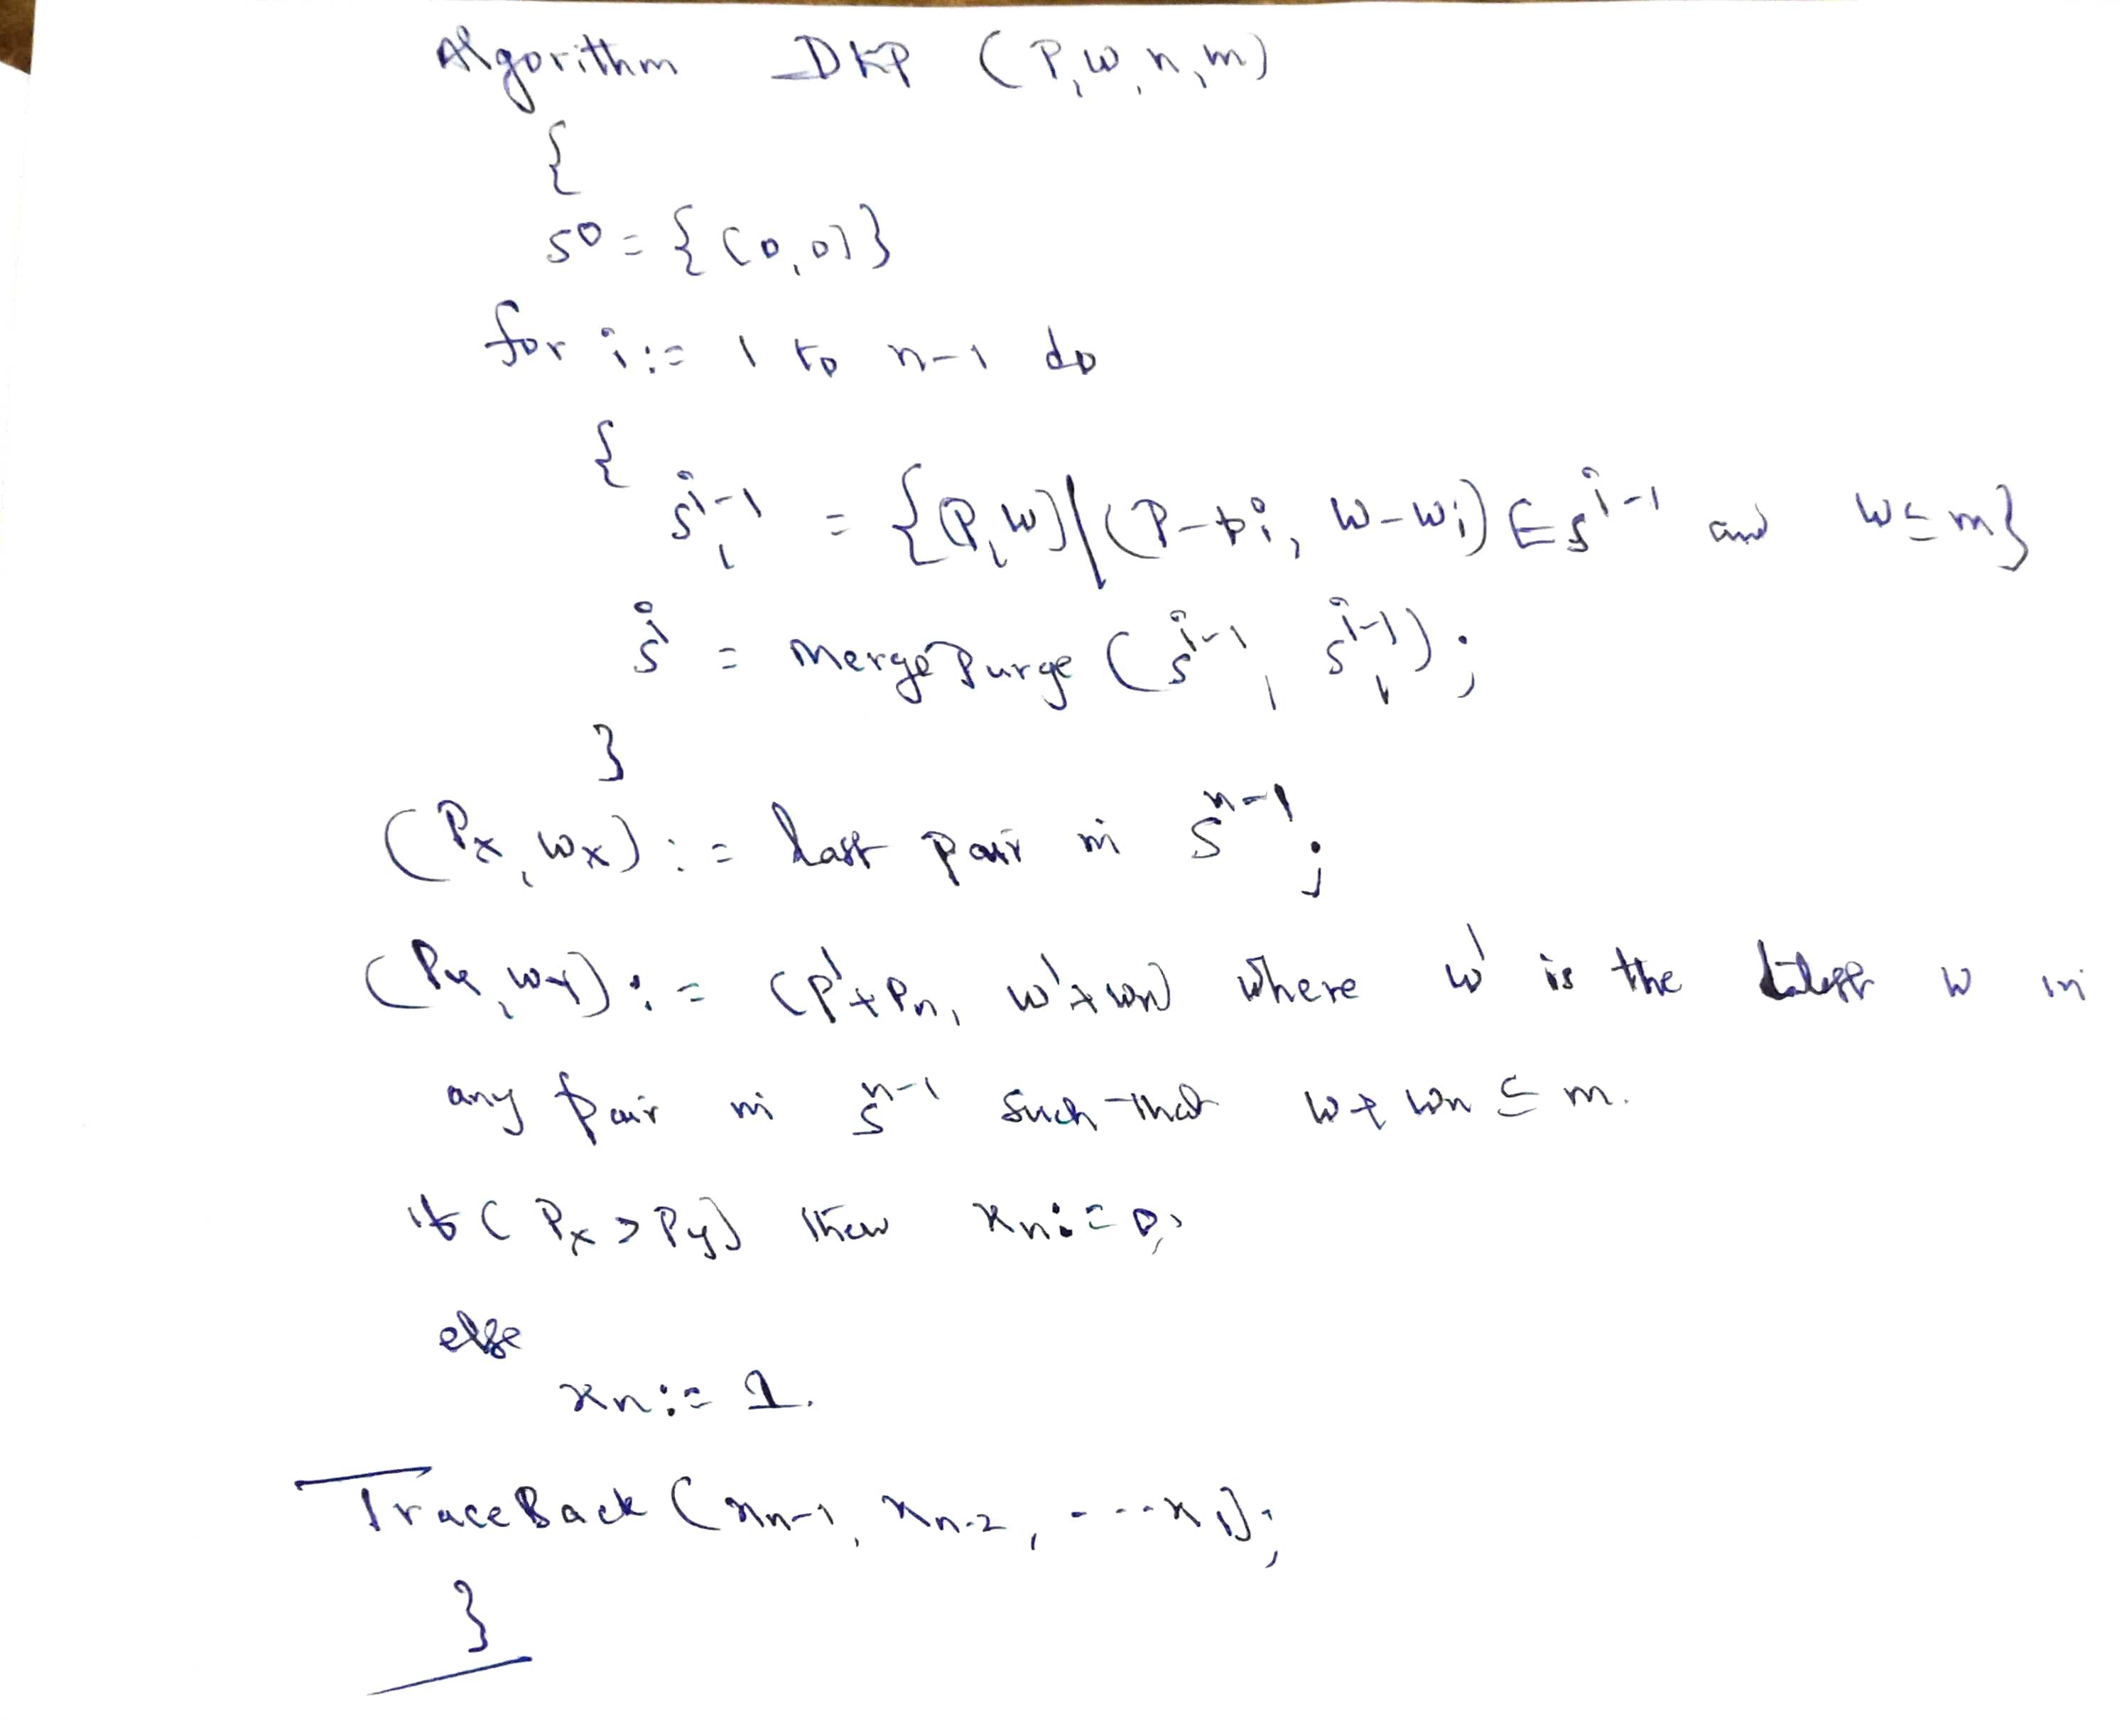 Algorithm DKP (P, w, n, m)
{
S⁰ = {(0,0)}
for i := 1 to n-1 do
{
S₁ⁱ⁻¹ = {(P,W) | (P-pi, W-wi) ∈ Sⁱ⁻¹ and W ≤ m}
Sⁱ = MergePurge (Sⁱ⁻¹, S₁ⁱ⁻¹);
}
(Px, Wx) := last pair in Sⁿ⁻¹;
(Py, Wy) := (P'+Pn, W'+Wn) where W' is the W in
any pair in Sⁿ⁻¹ such that W + Wn ≤ m.
if (Px > Py) then xn := 0;
else
xn := 1.
TraceBack (xn-1, xn-2, ....x1);
}